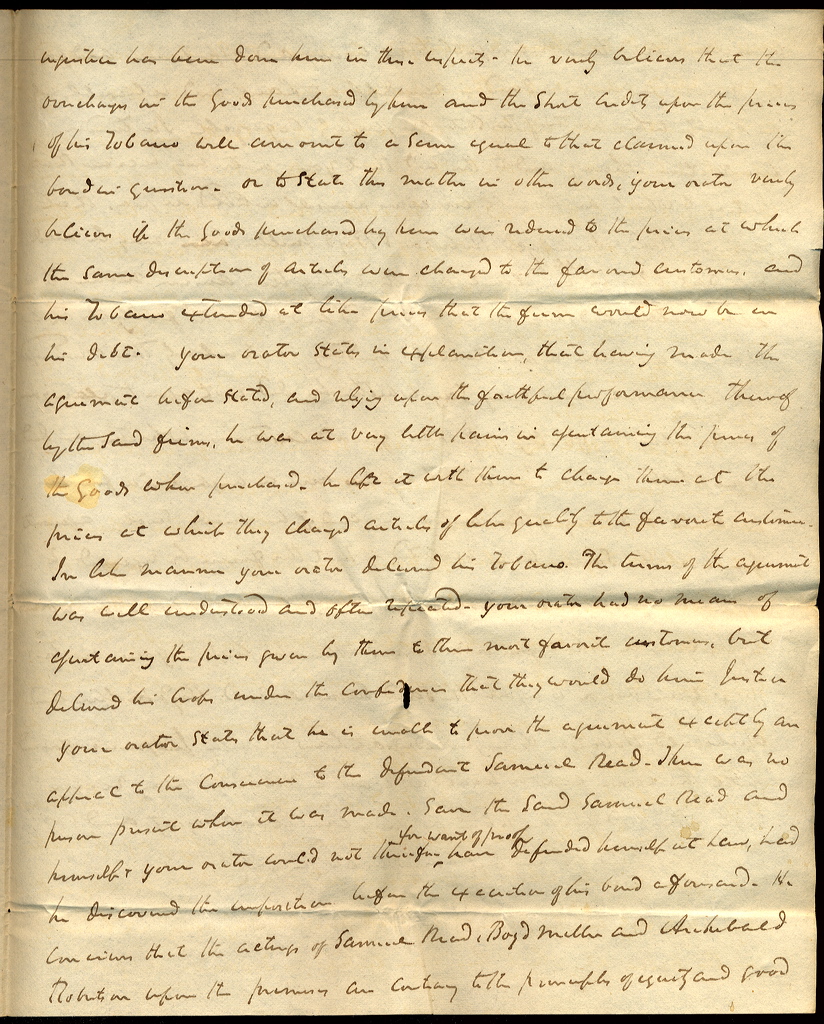 injustice has been done him in these respects - he verily believes that the
overcharges in the Goods purchased by him and the Short credits upon the prices
of his Tobacco will amount to a Sume equal to that claimed upon the
bond in question - or to State the matter in other words, your orator verily
believes if the Goods purchased by him was reduced to the prices at which
the Same description of articles were charged to the favored customers, and
his Tobacco extended at like prices that the firm would now be in
his debt. your orator States in explanation, that having made the
agreement before Stated, and relying upon the faithful performance thereof
by the Said firms, he was at very little pains in assertaining the prices of
the Goods when purchased - he left it with them to charge them at the
prices at which they charged articles of like quality to the favorite customers.
In like manner your orator delivered his Tobacco. The terms of the agreement
was well understood and often repeated - your orator had no means of
assertaining the prices given by them to their most favorite customers, but
delivered his Crops under the Confidence that they would do him Justice
your orator States that he is unable to prove the agreement except by an
appeal to the Conscience to the defendant Samuel Read - There was no
person present when it was made. Save the Said Samuel Read and
himself & your orator could not therefore have defended himself at Law, had
for want of proof
he discovered the imposition before the execution of his bond aforesaid - He
Conceives that the actings of Samuel Read, Boyd Miller and Archebald
Robertson upon the premises are Contrary to the principles of equity and good